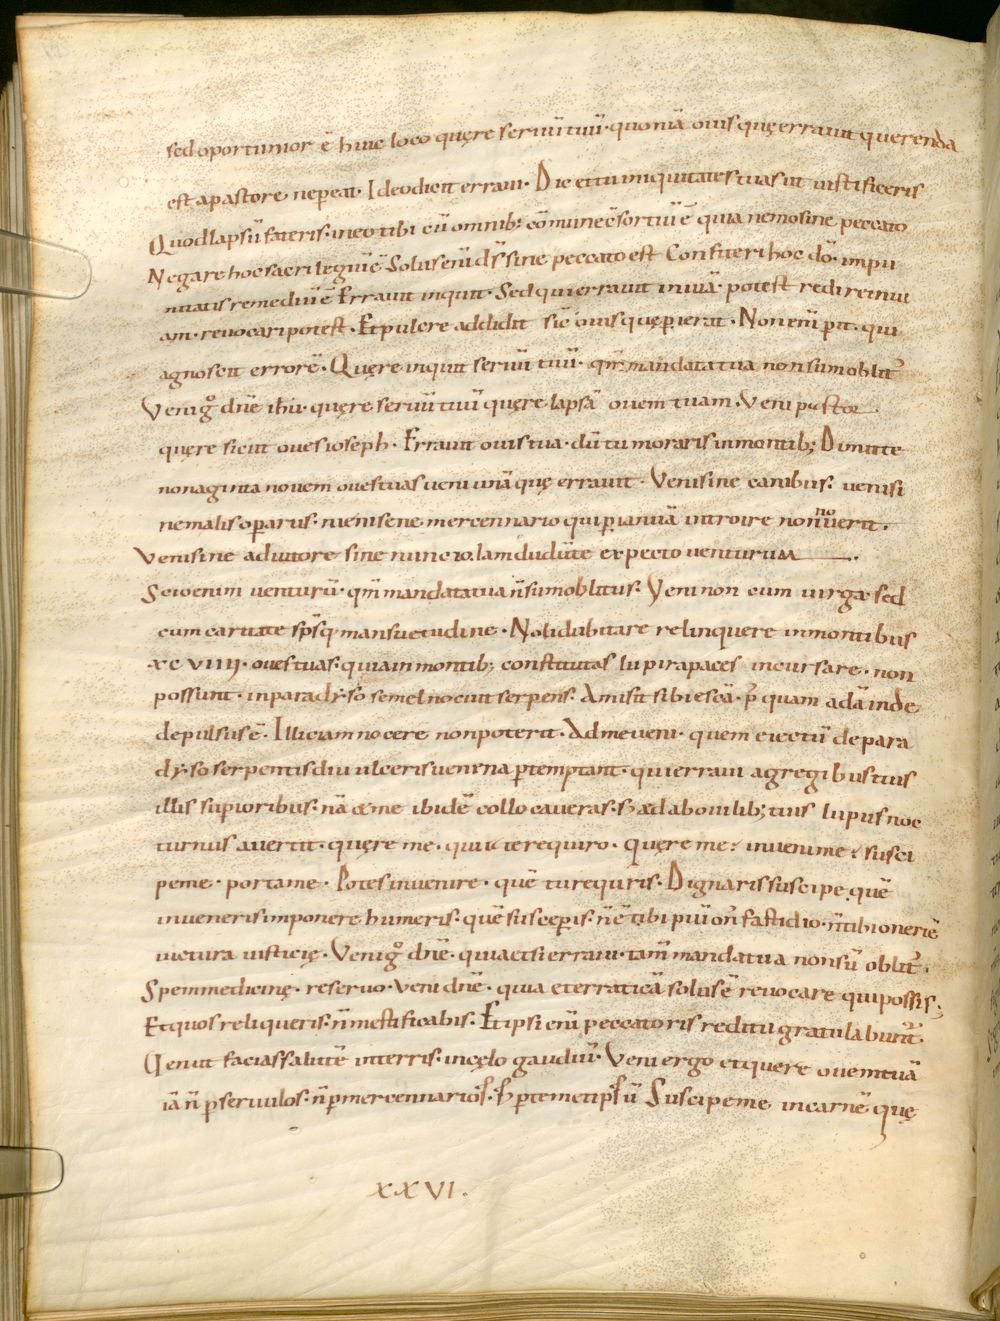 sed oportunior ē huic loco quęre seruū tuū · quoniā ouis quę errauit querenda
est a pastore ne pereat · Ideo dicit erraui · Dic et tu iniquitates tuas ut iustificeris
Quod lapsū fateris · in eo tibi cū omnib; cōmune c̄sortiū ē quia nemo sine peccato
Negare hoc sacrilegiū ē Solus enī ds̄ sine peccato est Confiteri hoc dō · impu
nitatis remediū ē Errauit inquit · Sed qui errauit in uiā · potest redire in ui
am · reuocari potest · Et pulcre addidit sic̄ ouis quę perierat · Non enī pit · qui
agnoscit errorē · Quęre inquit seruū tuū · qm̄ mandata tua non sum oblit᷒
Veni gͦ dnē ihū · quęre seruū tuū quęre lapsā ouem tuam · Veni pastor ·
quęre sicut oues ioseph · Errauit ouis tua · dū tu moraris in montib; Dimitte
nonaginta nouem oues tuas ueni unā quę errauit · Veni sine canibus · ueni si
ne malis operariis · ueni sene mercennario qui per ianuā introire non nouerit ·
Veni sine adiutore sine nuncio · Iamdudū te expecto uenturum ·
Scio enim uenturū · qm̄ mandata tua n̄ sum oblitus · Veni non cum uirga sed
cum caritate sps̄q mansuetudine · Noli dubitare relinquere in montibus
xcviiij · oues tuas · quia in montib; constitutas lupi rapaces incursare · non
possunt · in paradyso semel nocuit serpens · Amisit sibi escā · p̄quam adā inde
depulsus ē · Illic iam nocere non poterit · Ad me ueni · quem eiectū de para
dyso serpentis diu ulceris uenena ptemptant · qui erraui a gregibus tuis
illis supioribus · nā & me ibidē collocaueras · s; ad ab ouilib; tuis lupus noc
turnus auertit · quęre me · quia te requiro · quęre me · inueni me · susci
pe me · porta me · Potes inuenire · quē tu requiris · Dignaris suscipe quē
inueneris imponere humeris · quē susceperis · n̄ ē tibi piū on̄ fastidio · n̄ tibi oneri ē
uictura iusticię · Veni gͦ dnē · quia etsi erraui · tam̄ mandata tua non sū oblit᷒ ·
Spem medicinę · reseruo · Veni dnē · quia et erraticā solus ē reuocare qui possis ;
Et quos reliqueris · n̄ mestificabis · Et ipsi enī peccatoris reditu gratulabunt᷒ ·
Qeni ut facias salutē in terris · in cęlo gaudiū · Veni ergo et quere ouem tuā
iā n̄ p seruulos · n̄ p mercennarios · S; p temetipsū Suscipe me in carnē quę
xxvi ·